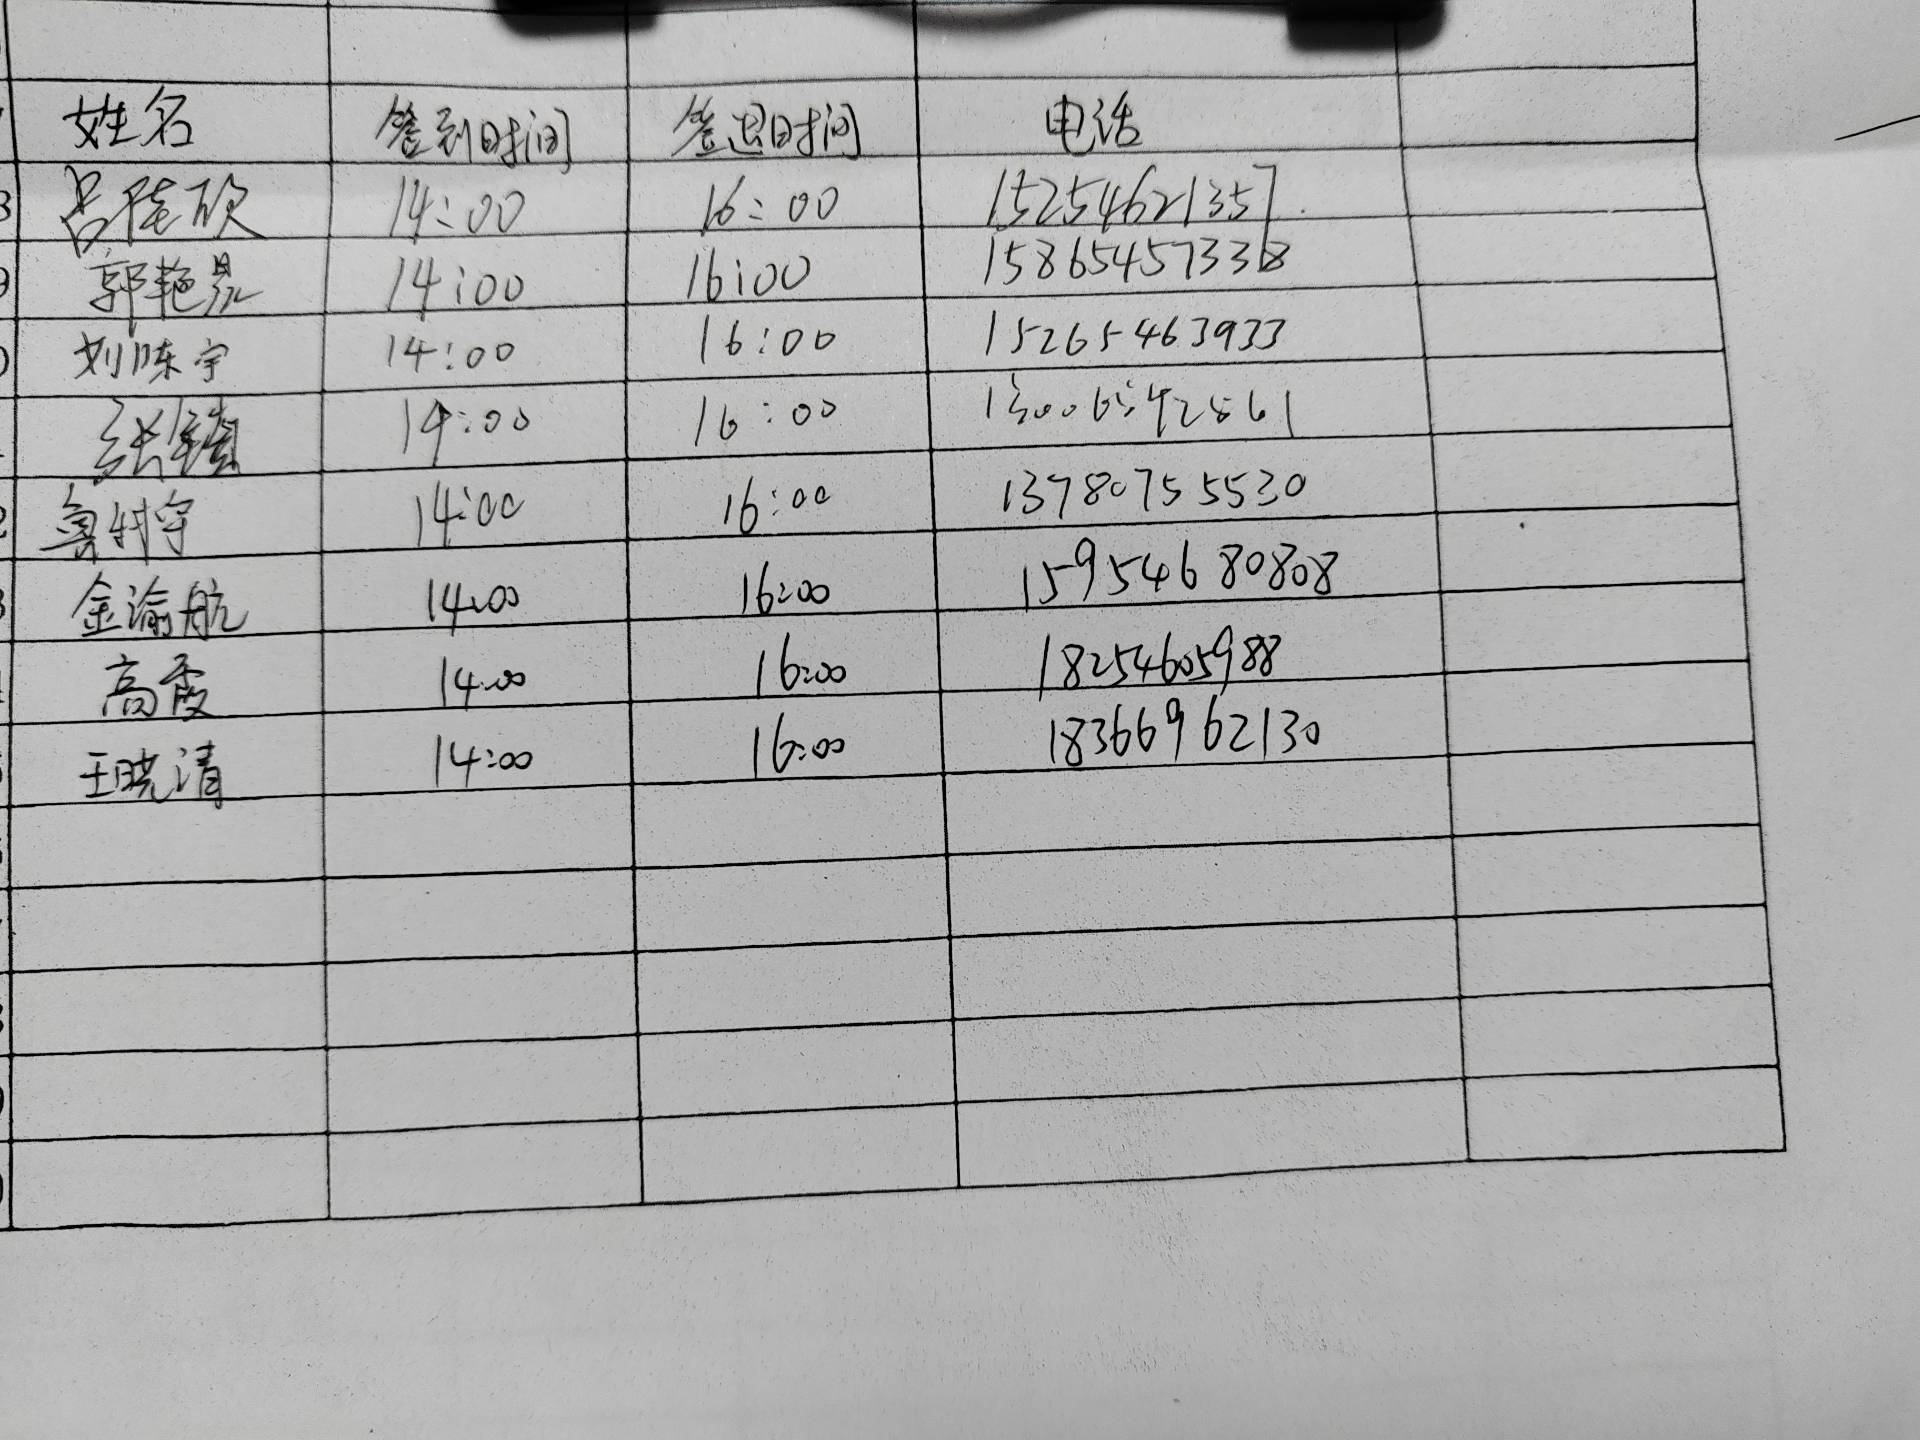 姓名 签到时间 签退时间 电话
吕陆欣 14:00 16:00 15254621357
郭艳 14:00 16:00 15865457338
刘陈宇 14:00 16:00 15265463933
张 14:00 16:00
鲁 宇 14:00 16:00 13780755530
金渝航 14:00 16:00 159546 80808
高霞 14:00 16:00 18254605988
王晓清 14:00 16:00 18366962130